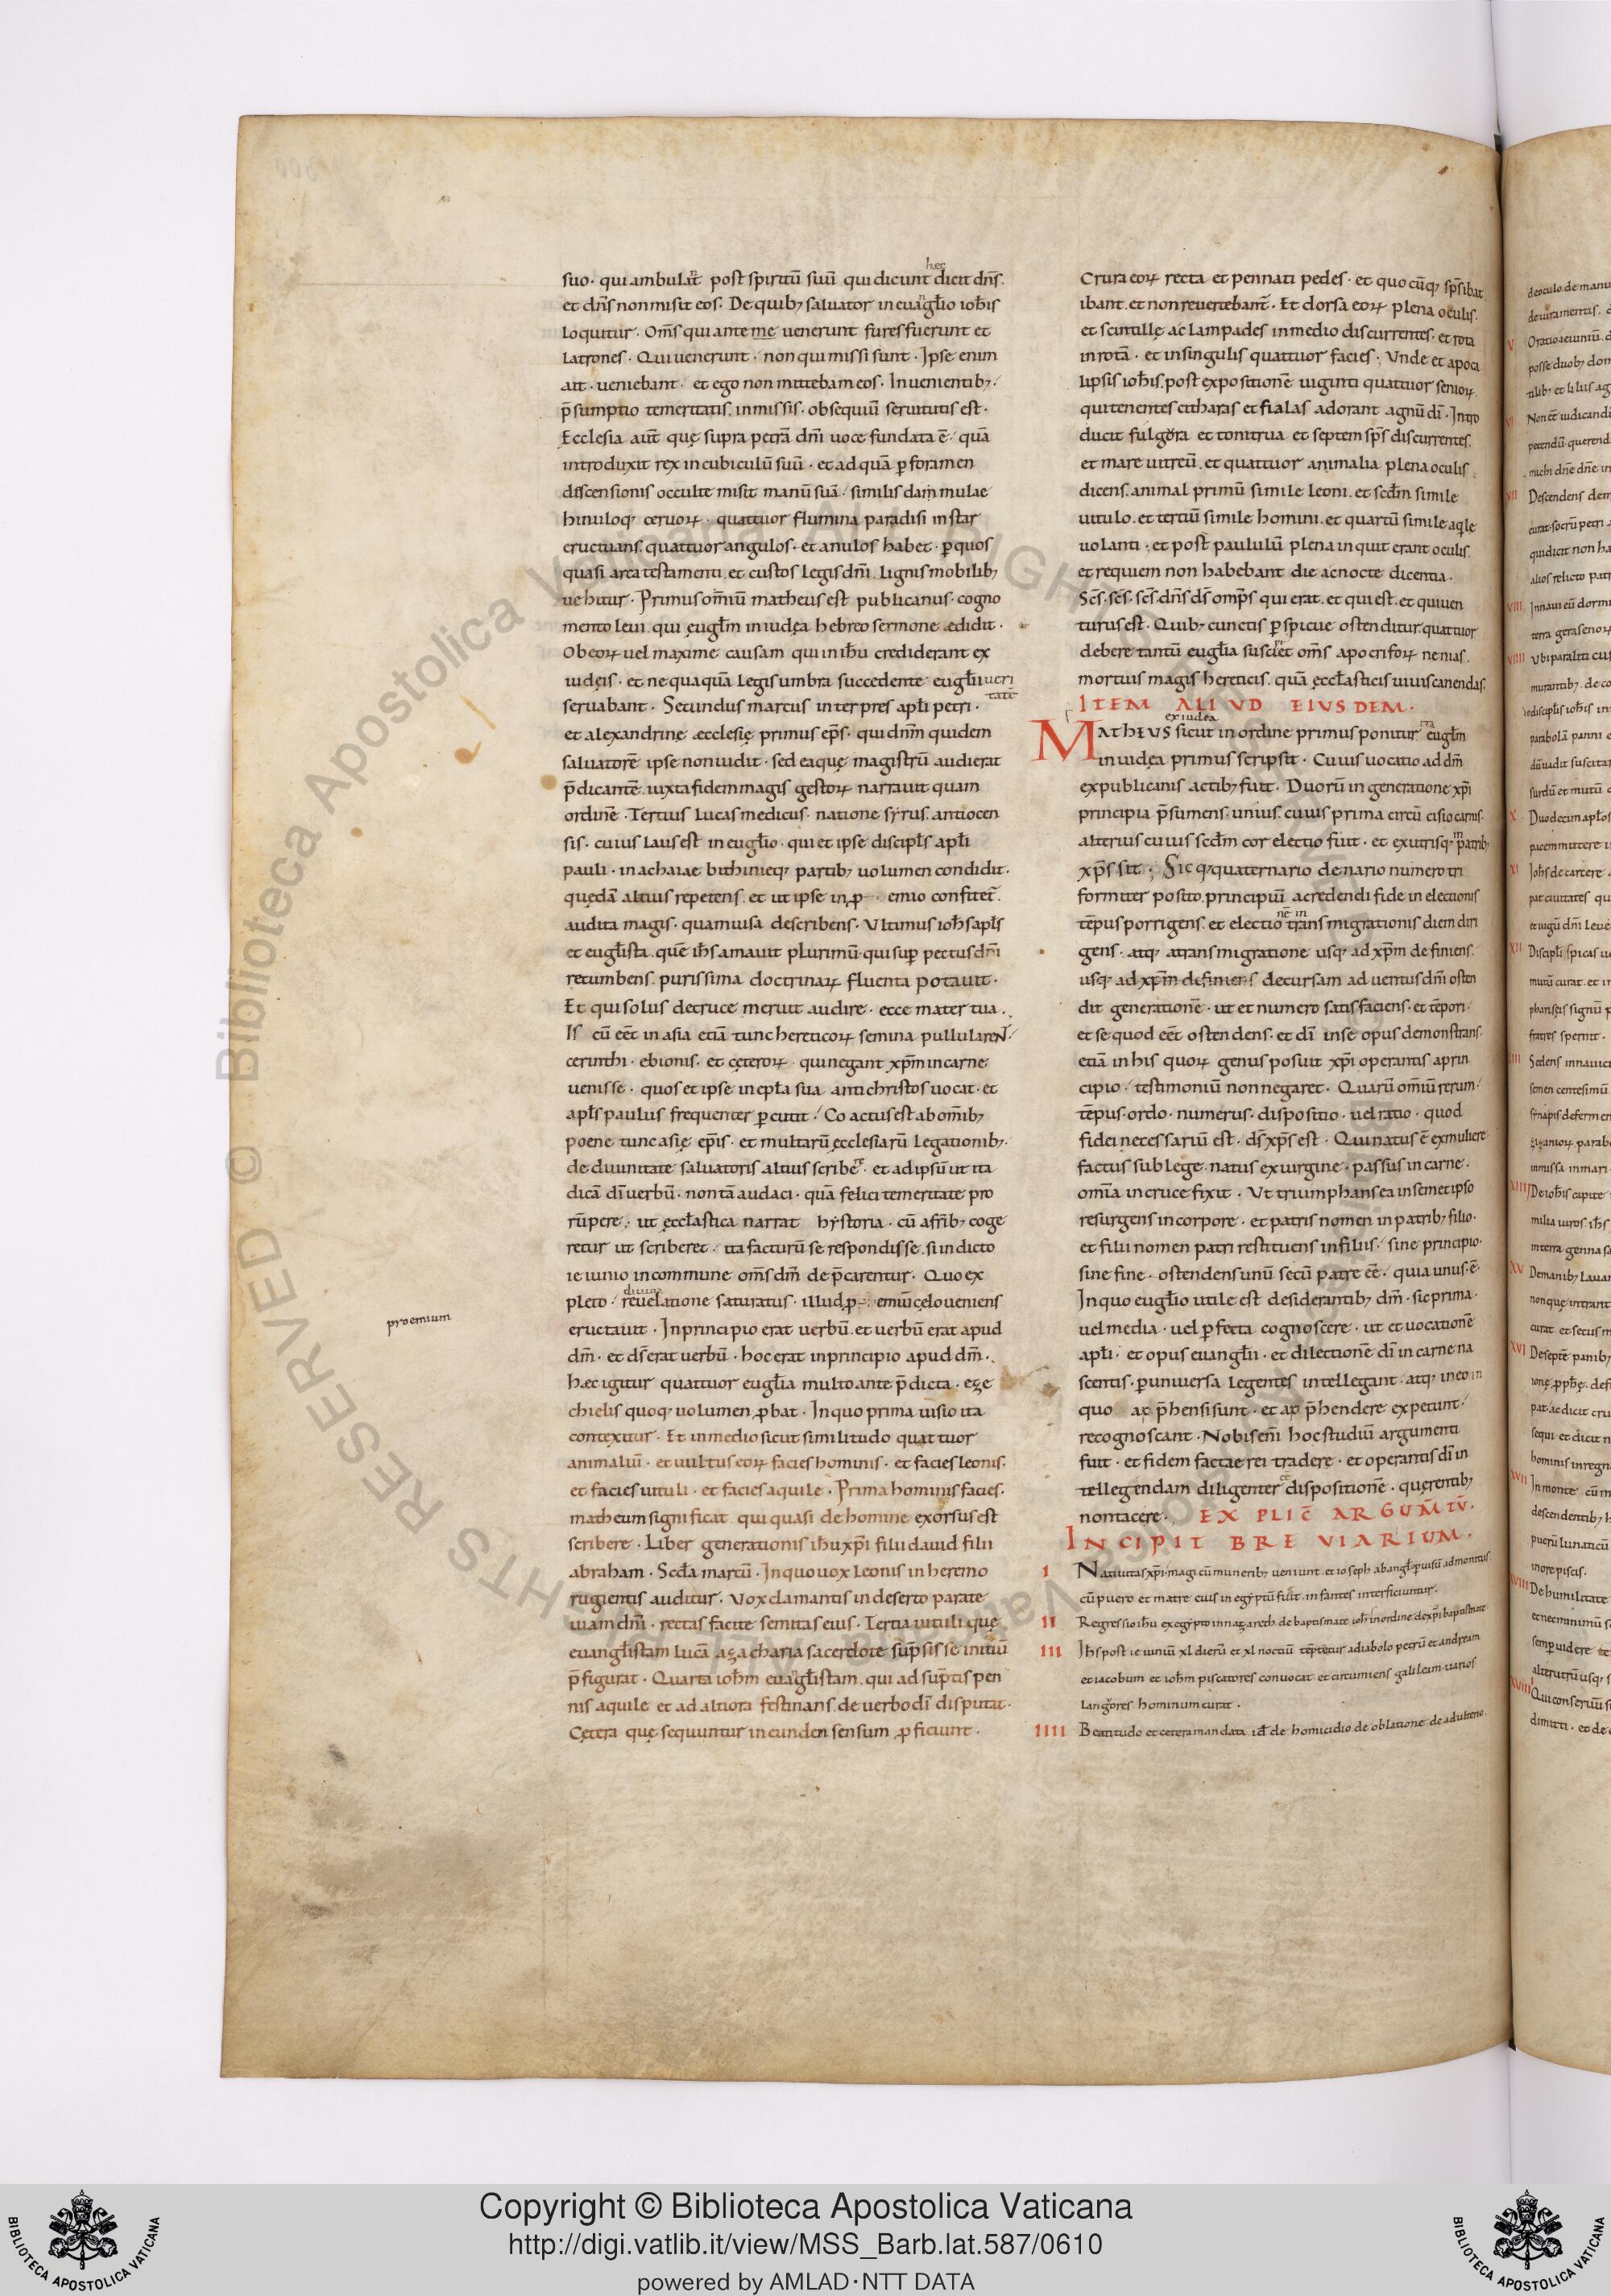 suo · qui ambulant post spiritū suū qui dicunt hęc dicit dn̄s ·
et dn̄s non misit eos · De quib; saluator in euanglio ioh̄is
loquitur · Om̄s qui ante me uenerunt fures fuerunt et
latrones · Qui uenerunt · non qui missi sunt · Ipse enim
ait · ueniebant · et ego non mittebam eos · In uenientib; ·
p̄sumptio temeritatis · in missis · obsequiū seruitutis est ·
Ecclesia aut̄ quę supra petrā dn̄i uoce fundata ē · quā
introduxit rex in cubiculū suū · et ad quā p foramen
discensionis occulte misit manū suā · similis dammulae
hinuloq; ceruoꝝ · quattuor flumina paradisi instar
eructuans · quattuor angulos · et anulos habet · p quos
quasi arca testamenti · et custos legis dn̄i · lignis mobilib;
uehitur · Primus om̄iū matheus est publicanus · cogno
mento leui · qui ęuglm̄ in iudęa hebreo sermone ędidit ·
Ob eoꝝ uel maxime causam qui in ih̄u crediderant ex
iudęis · et nequaquā legis umbra succedente euglii ueri
tatē
seruabant · Secundus marcus interpres apl̄i petri ·
et alexandrinę ęcclesię primus ep̄s · qui dn̄m quidem
saluatorē ipse non uidit · sed ea quę magistrū audierat
p̄dicantē · iuxta fidem magis gestoꝝ narrauit quam
ordinē · Tertius lucas medicus · natione syrus · antiocen
sis · cuius laus est in euglio · qui et ipse discipls apl̄i
pauli · in achaiae bithinieq; partib; uolumen condidit ·
quędā altius repetens · et ut ipse in pro emio confitet̄ ·
audita magis · quam uisa describens · Vltimus ioh̄s apls
et euglista · quē ih̄s amauit plurimū · qui sup pectus dn̄i
recumbens · purissima doctrinaꝝ fluenta potauit ·
Et qui solus de cruce meruit audire · ecce mater tua ·
Is cū eēt in asia etiā tunc hereticoꝝ semina pullularent ·
cerinthi · ebionis · et cęteroꝝ · qui negant xp̄m in carne
uenisse · quos et ipse in epl̄a sua antichristos uocat · et
apls paulus frequenter p cutit · Coactus est ab om̄ib;
poene tunc asię ep̄is · et multarū ęcclesiarū legationib; ·
de diuinitate saluatoris altius scribere · et ad ipsū ut ita
dicā dī uerbū · non tā audaci · quā felici temeritate pro
rūpere · ut ęccl̄astica narrat hystoria · cū a frīb; coge
retur ut scriberet · ita facturū se respondisse · si indicto
ieiunio in commune om̄s dm̄ dep̄carentur · Quo ex
pleto · diuina reuelatione saturatus · illud pro emiū cęlo ueniens
proemium
eructauit · In principio erat uerbū · et uerbū erat apud
dm̄ · et ds̄ erat uerbū · hoc erat in principio apud dm̄ ·
hęc igitur quattuor euglia multo ante p̄dicta · eze
chielis quoq; uolumen pbat · In quo prima uisio ita
contexitur · Et in medio sicut similitudo quattuor
animaliū · et uultus eoꝝ facies hominis · et facies leonis ·
et facies uituli · et facies aquile · Prima hominis facies ·
matheum significat · qui quasi de homine exorsus est
scribere · Liber generationis ih̄u xp̄i filii dauid filii
abraham · Scd̄a marcū · In quo uox leonis in heremo
rugientis auditur · Vox clamantis in deserto parate
uiam dn̄i · rectas facite semitas eius · Tertia uituli · quę
euanglistam lucā a zacharia sacerdote sūpsisse initiū
p̄figurat · Quarta ioh̄m euanglistam · qui ad sūptis pen
nis aquile et ad altiora festinans · de uerbo dī disputat ·
Cętera quę sequuntur in eunden sensum pficiunt ·
Crura eoꝝ recta et pennati pedes · et quo cūq; sp̄s ibat
ibant · et non reuertebant̄ · Et dorsa eoꝝ plena oculis ·
et scintillę ac lampades in medio discurrentes · et rota
in rotā · et in singulis quattuor facies · Vnde et apoca
lipsis ioh̄is · post expositionē uiginti quattuor senioꝝ
qui tenentes citharas et fialas adorant agnū dī · Intro
ducit fulgora et tonitrua et septem sp̄s discurrentes ·
et mare uitreū · et quattuor animalia plena oculis ·
dicens · animal primū simile leoni · et scdm̄ simile
uitulo · et tertiū simile homini · et quartū simile aqle
uolanti · et post paululū plena inquit erant oculis ·
et requiem non habebant die ac nocte dicentia ·
Scs̄ · scs̄ · scs̄ · dn̄s ds̄ omp̄s qui erat · et qui est · et qui uen
turus est · Quib; cunctis pspicue ostenditur · quattuor
debere tantū euglia suscipi et om̄s apocrifoꝝ nenias ·
mortuis magis hereticis · quā ęccl̄asticis uiuis canendas ·
ITEM ALIVD EIVSDEM ·
Matheus ex iudea sicut in ordine primus ponitur ita euglm̄
in iudęa primus scripsit · Cuius uocatio ad dm̄
ex publicanis actib; fuit · Duorū in generatione xp̄i
principia p̄sumens · unius · cuius prima circūcisio carnis ·
alterius cuius scdm̄ cor electio fuit · et ex utrisq; in patrib;
xp̄s sit · Sicq; quaternario denario numero tri
formiter posito · principiū a credendi fide in electionis
tēpus porrigens · et electionē in transmigrationis diem diri
gens · atq; a transmigratione usq; ad xp̄m definiens ·
usq; ad xp̄m definiens decursam aduentus dn̄i osten
dit generationē · ut et numero satisfaciens · et tēpori ·
et se quod eēt ostendens · et dī in se opus demonstrans ·
etiā in his quoꝝ genus posuit xp̄i operantis a prin
cipio · testimoniū non negaret · Quarū om̄iū rerum ·
tēpus · ordo · numerus · dispositio · uel ratio · quod
fidei necessariū est · ds̄ xp̄s est · Qui natus ē ex muliere
factus sub lege · natus ex uirgine · passus in carne ·
omīa in cruce fixit · Vt triumphans ea in semet ipso
resurgens in corpore · et patris nomen in patrib; filio ·
et filii nomen patri restituens in filiis · sine principio ·
sine fine · ostendens unū secū patre eē · quia unus ē ·
In quo euglio utile est desiderantib; dm̄ · sic prima ·
uel media · uel pfecta cognoscere · ut et uocationē
apl̄i · et opus euanglii · et dilectionē dī in carne na
scentis · p uniuersa legentes intellegant · atq; in eo in
quo ap p̄hensi sunt · et ap p̄hendere expetunt ·
recognoscant · Nobis enī hoc studiū argumenti
fuit · et fidem factae rei tradere · et operantis dī in
tellegendam diligenter dispositionē · quęrentib;
non tacere · EXPLIC̄ ARGUM̄TV̄ ·
INCIPIT BREVIARIUM ·
I Natiuitas xp̄i · magi cū munerib; ueniunt · et ioseph ab angl̄o p uisū admonitus
cū puero et matre eius in egyptū fugit · infantes interficiuntur ·
II Regressio ih̄u ex egypto in nazareth · de baptismate ioh̄ in ordine de xp̄i baptismate
III Ih̄s post ieiuniū xl dierū et xl noctiū tēptetur a diabolo petrū et andream
et iacobum et ioh̄m piscatores conuocat et circumiens galileam uarios
langores hominum curat ·
IIII Beatitudo et cetera mandata id̄ de homicidio de oblatione de adulterio
Copyright © Biblioteca Apostolica Vaticana
http://digi.vatlib.it/view/MSS_Barb.lat.587/0610
powered by AMLAD·NTT DATA
BIBLIOTECA APOSTOLICA VATICANA
BIBLIOTECA APOSTOLICA VATICANA